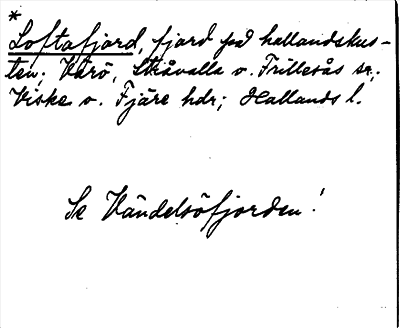 *
Loftafjord, fjord på hallandskus-
ten; Värö, Stråvalla o. Frillesås sn;
Viske o. Fjäre hdr; Hallands l.
Se Vändelsöfjorden!